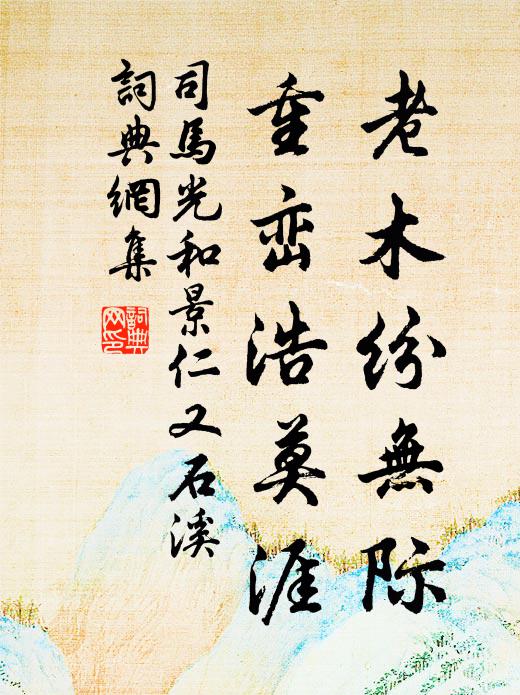 老木纷無际
重峦浩莫涯
司馬光和景仁又石溪
詞典網集
詞典
网印